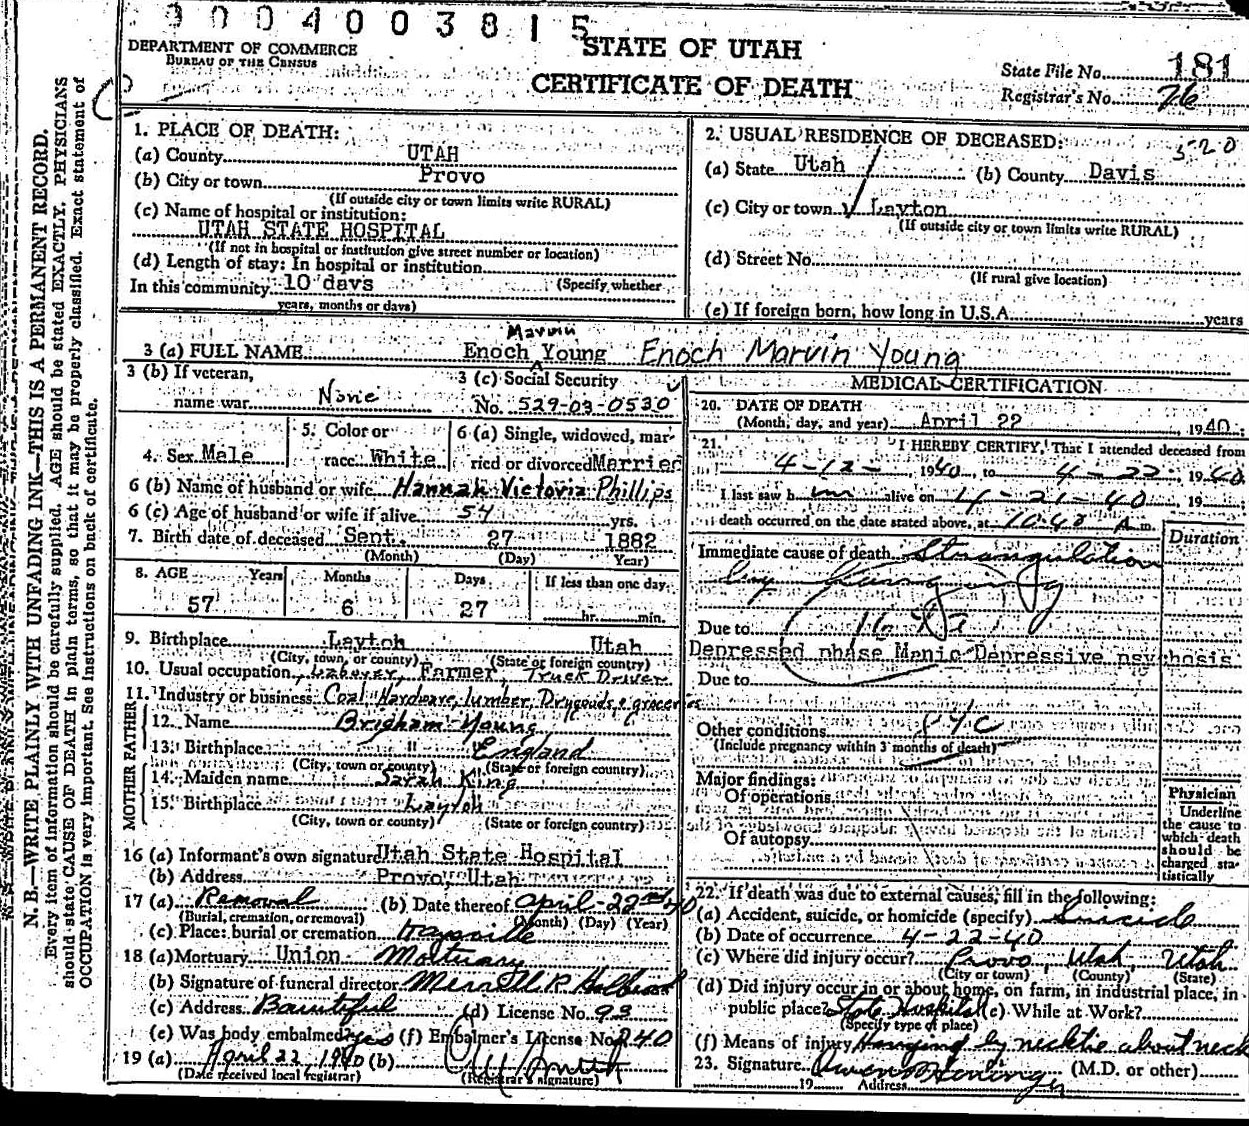 9004003815
DEPARTMENT OF COMMERCE
BUREAU OF THE CENSUS
STATE OF UTAH
CERTIFICATE OF DEATH
State File No. 181
Registrar's No. 76
N. B.—WRITE PLAINLY WITH UNFADING INK—THIS IS A PERMANENT RECORD.
Every item of information should be carefully supplied. AGE should be stated EXACTLY. PHYSICIANS
should state CAUSE OF DEATH in plain terms, so that it may be properly classified. Exact statement of
OCCUPATION is very important. See instructions on back of certificate.
1. PLACE OF DEATH:
(a) County UTAH
(b) City or town Provo
(If outside city or town limits write RURAL)
(c) Name of hospital or institution:
UTAH STATE HOSPITAL
(If not in hospital or institution give street number or location)
(d) Length of stay: In hospital or institution
In this community 10 days (Specify whether
years, months or days)
2. USUAL RESIDENCE OF DECEASED: 520
(a) State Utah (b) County Davis
(c) City or town Layton
(If outside city or town limits write RURAL)
(d) Street No.
(If rural give location)
(e) If foreign born, how long in U.S.A. years
Marvin
3 (a) FULL NAME Enoch Young Enoch Marvin Young
3 (b) If veteran,
name war None
3 (c) Social Security
No. 529-03-0530
4. Sex Male
5. Color or
race White
6 (a) Single, widowed, mar-
ried or divorced Married
6 (b) Name of husband or wife Hannah Victoria Phillips
6 (c) Age of husband or wife if alive 54 yrs.
7. Birth date of deceased Sept. 27 1882
(Month) (Day) Year)
8. AGE Years Months Days If less than one day
57 6 27 hr. min.
9. Birthplace Layton Utah
(City, town, or county) (State or foreign country)
10. Usual occupation Laborer, Farmer, Truck Driver
11. Industry or business Coal, Hardware, lumber, Drygoods, & groceries
FATHER
12. Name Brigham Young
13. Birthplace " England
(City, town or county) (State or foreign country)
MOTHER
14. Maiden name Sarah King
15. Birthplace Layton
(City, town or county) (State or foreign country)
16 (a) Informant's own signature Utah State Hospital
(b) Address Provo, Utah
17 (a) Removal (b) Date thereof April-22nd 40
(Burial, cremation, or removal) (Month) (Day) (Year)
(c) Place: burial or cremation Kaysville
18 (a) Mortuary Union Mortuary
(b) Signature of funeral director Merrell R
(c) Address Bountiful (d) License No. 93
(e) Was body embalmed? yes (f) Embalmer's License No. 240
19 (a) April 22, 1940 (b)
(Date received local registrar) (Registrar's signature)
MEDICAL CERTIFICATION
20. DATE OF DEATH
(Month, day, and year) April 22 1940
21. I HEREBY CERTIFY, That I attended deceased from
4-12- 1940, to 4-22- 1940
I last saw h im alive on 4-21-40, 19
death occurred on the date stated above, at 10:40 A m.
Duration
Immediate cause of death Strangulation
by hanging
Due to
Depressed phase Manic Depressive psychosis
Due to
Other conditions
(Include pregnancy within 3 months of death)
Major findings:
Of operations
Of autopsy
Physician
Underline
the cause to
which death
should be
charged sta-
tistically
22. If death was due to external causes, fill in the following:
(a) Accident, suicide, or homicide (specify) Suicide
(b) Date of occurrence 4-22-40
(c) Where did injury occur? Provo, Utah, Utah
(City or town) (County) (State)
(d) Did injury occur in or about home, on farm, in industrial place, in
public place? State Hospital (e) While at Work?
(Specify type of place)
(f) Means of injury Hanging by necktie about neck
23. Signature Owen (M.D. or other)
19 Address